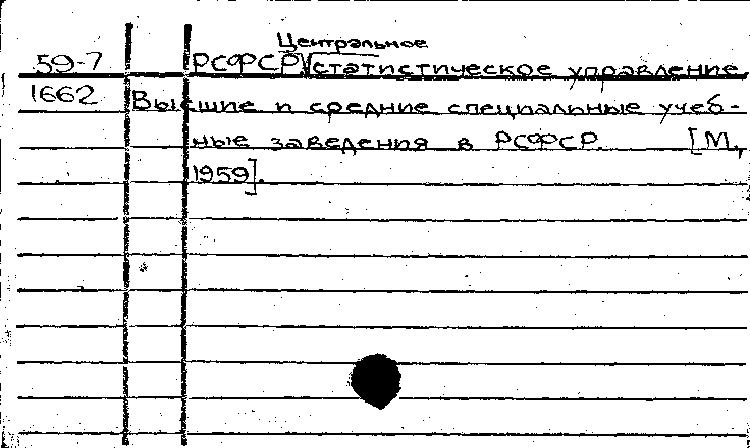 Центральное
59-7 РСФСР √ статистическое управление.
1662 Высшие и средние специальные учеб-
ные заведения в РСФСР. [М.,
1959].